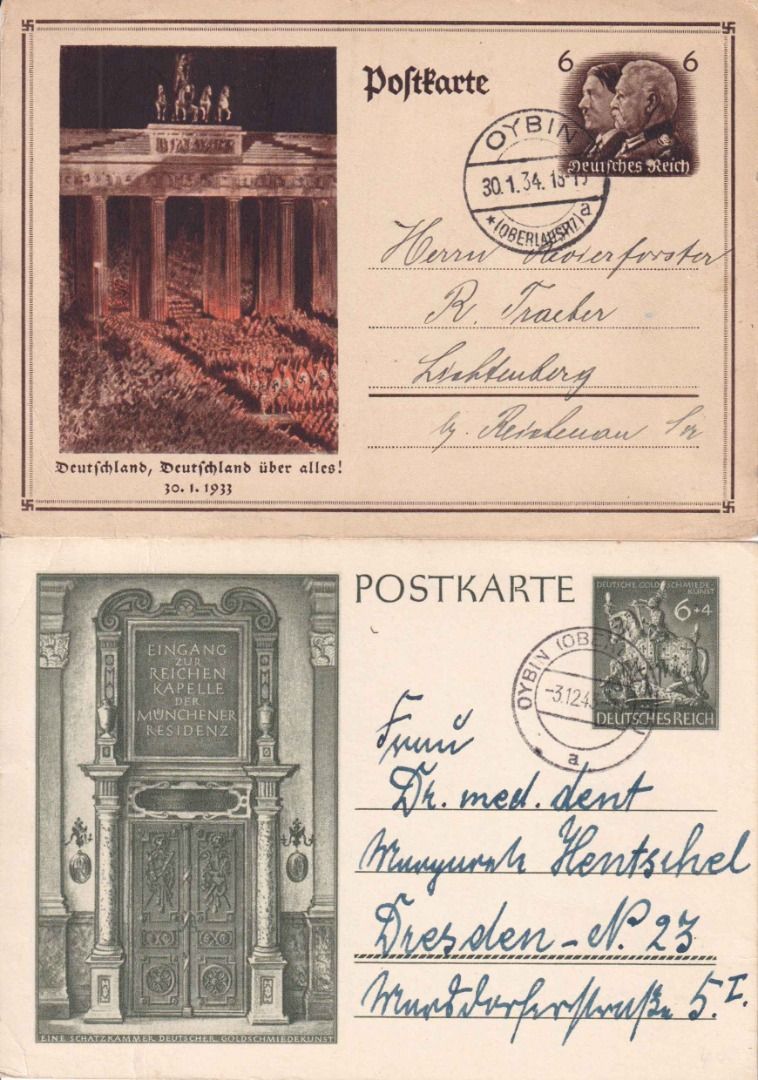 Postkarte
6 6
Deutsches Reich
OYBIN
30.1.34. 18-19
* (OBERLAUSITZ) a
Herrn Revierförster
R. Traeber
Lichtenberg
b. Reichenau Sa
Deutschland, Deutschland über alles!
30. 1. 1933
POSTKARTE
DEUTSCHE GOLDSCHMIEDE-
KUNST
6+4
DEUTSCHES REICH
OYBIN (OBER
-3.12.43
a
EINGANG
ZUR
REICHEN
KAPELLE
DER
MÜNCHENER
RESIDENZ
Frau
Dr. med. dent
Hentschel
Dresden-N. 23
5.I.
EINE SCHATZKAMMER DEUTSCHER GOLDSCHMIEDEKUNST